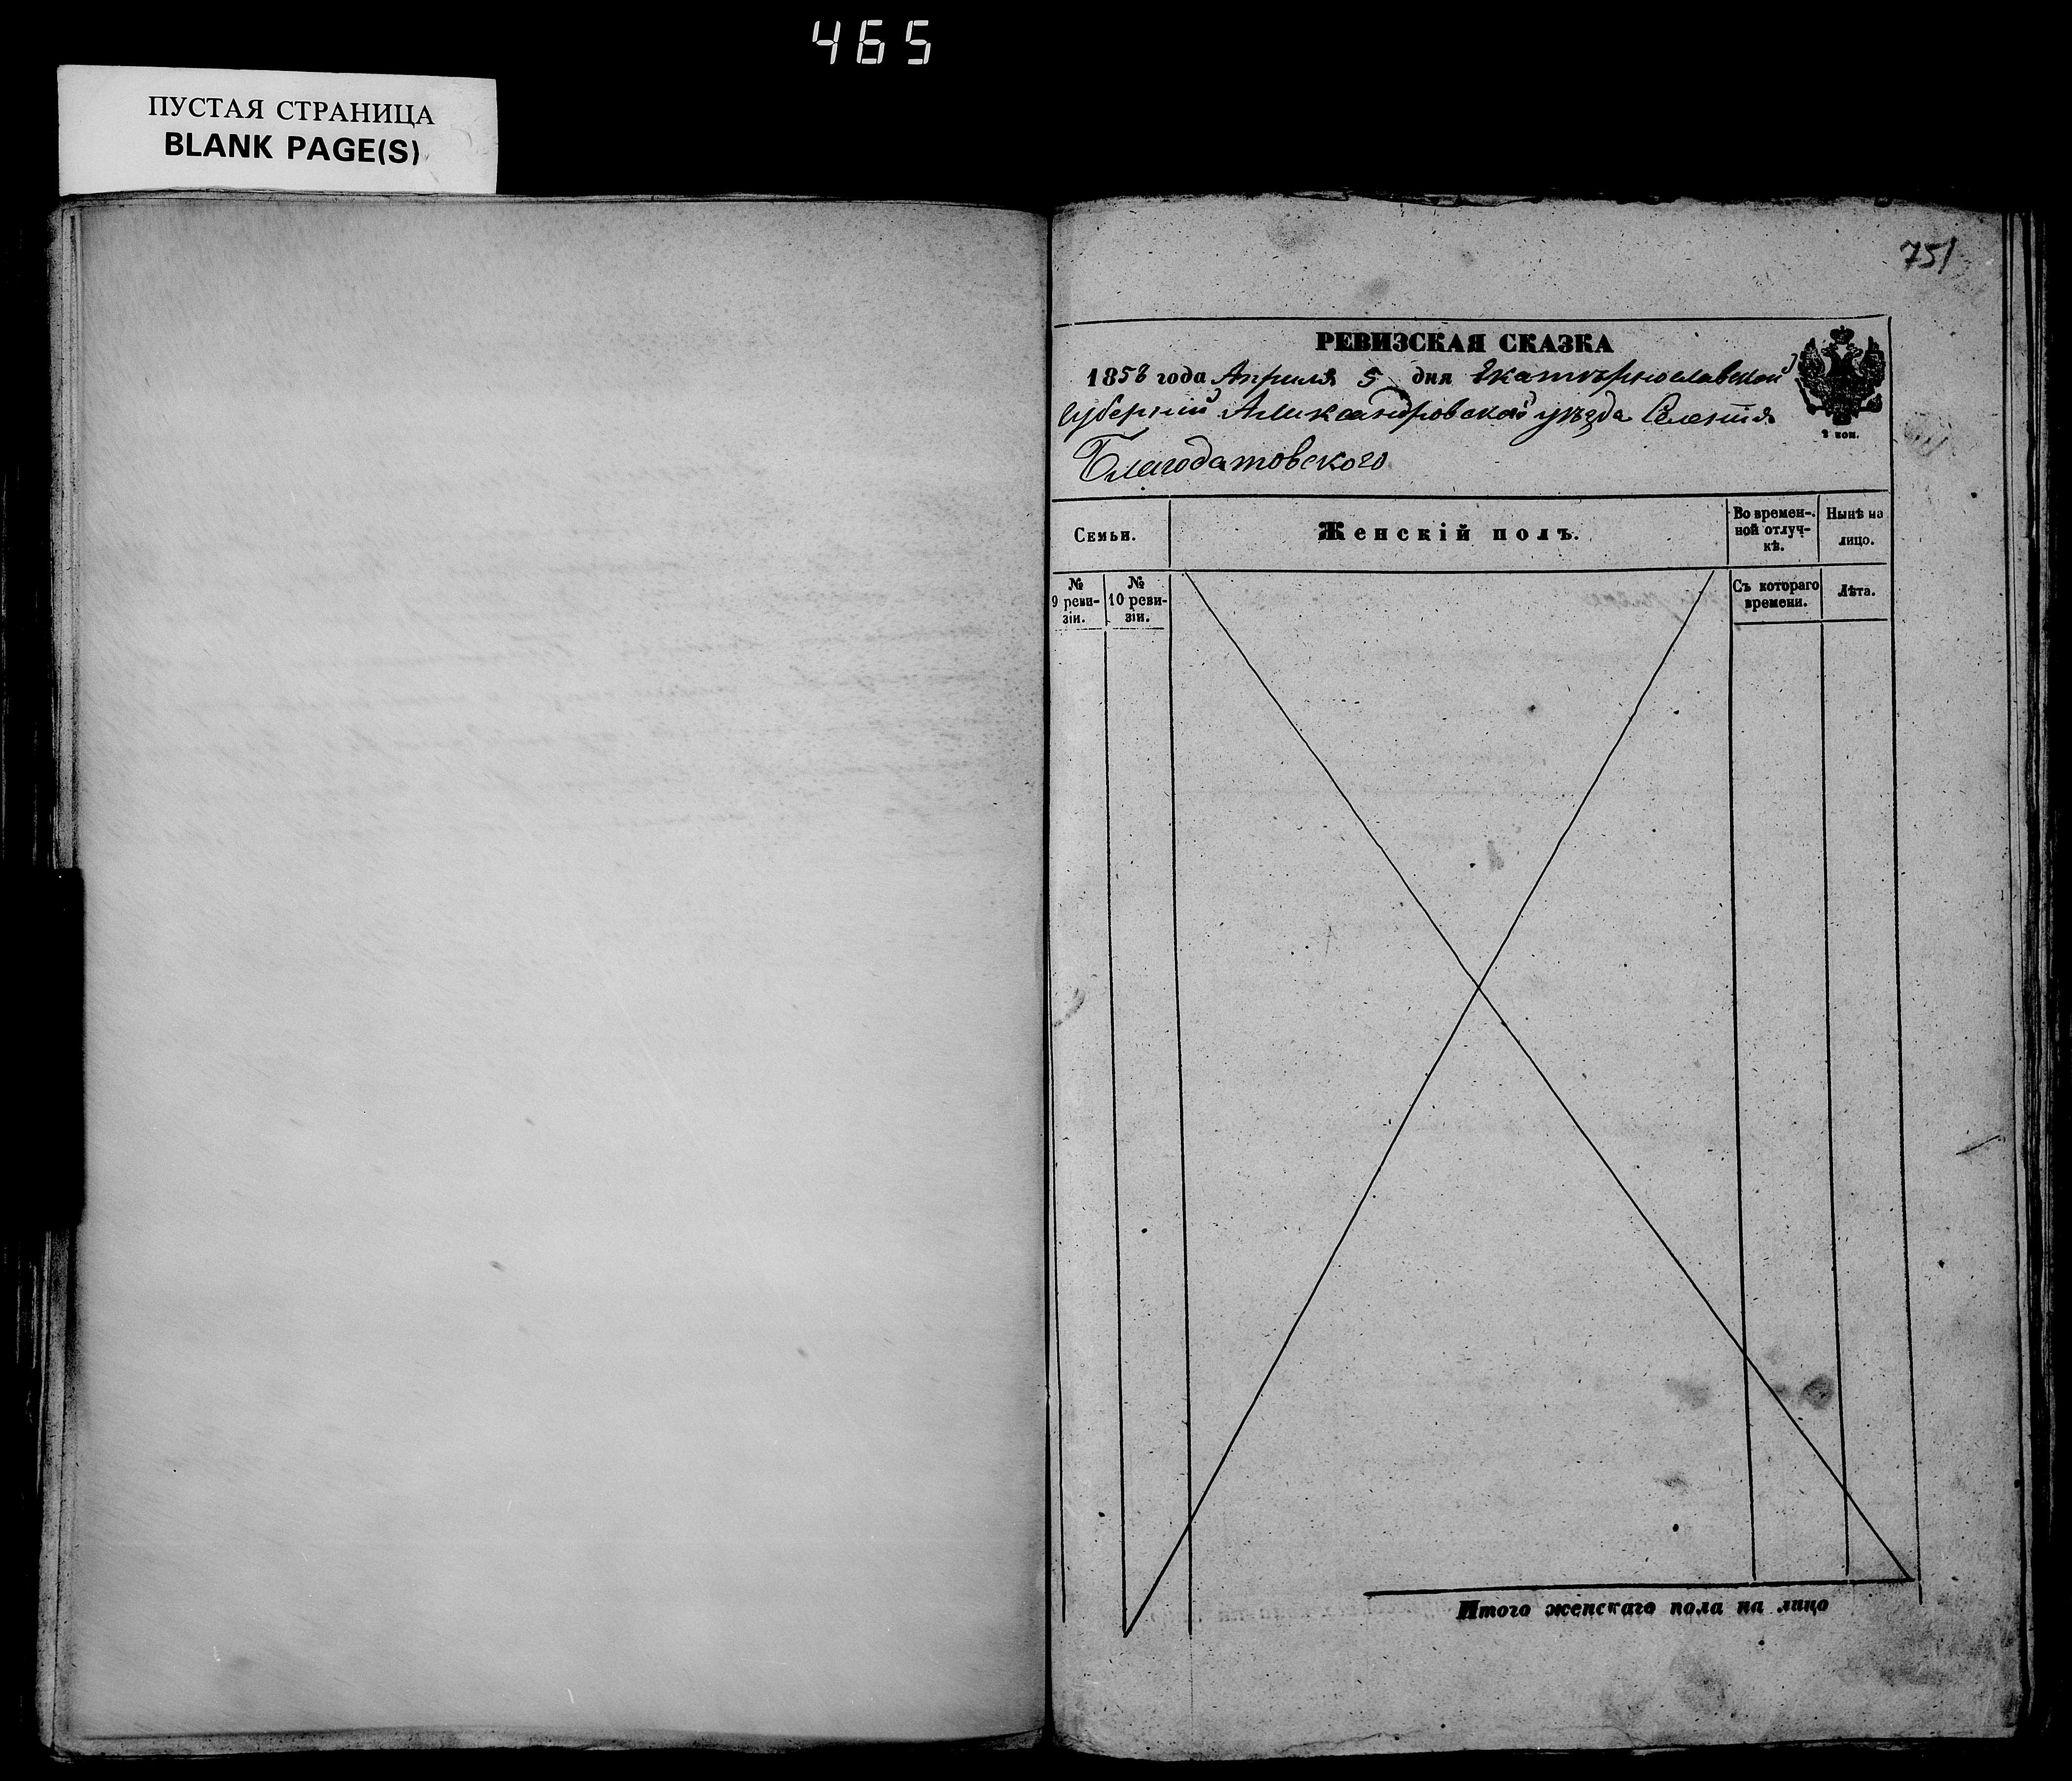 465
ПУСТАЯ СТРАНИЦА
BLANK PAGE(S)
751
РЕВИЗСКАЯ СКАЗКА
1858 года Апреля 5 дня Екатеринославской
Губернии Александровского уѣзда Селенія
Благодатовского
2 коп.
Семьи.
Женскій полъ.
Во времен-
ной отлуч-
кѣ.
Нынѣ на
лицо.
№
9 реви-
зіи.
№
10 реви-
зіи.
Съ котораго
времени.
Лѣта.
Итого женскаго пола на лицо